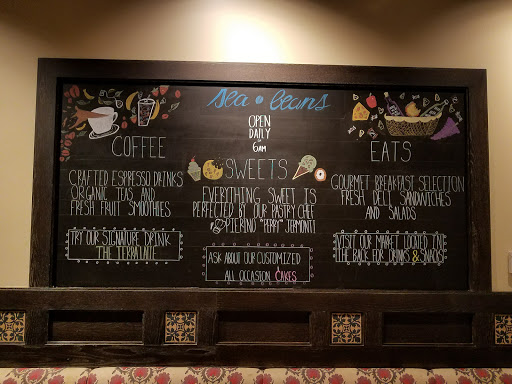 sea • beans
OPEN
DAILY
6AM
COFFEE
CRAFTED ESPRESSO DRINKS
ORGANIC TEAS AND
FRESH FRUIT SMOOTHIES
TRY OUR SIGNATURE DRINK
SWEETS
EVERYTHING SWEET IS
PERFECTED BY OUR PASTRY CHEF
PIERINO "PERRY" JERMONTI
ASK ABOUT OUR CUSTOMIZED
ALL OCCASION CAKES
EATS
GOURMET BREAKFAST SELECTION
FRESH DELI SANDWICHES
AND SALADS
VISIT OUR MARKET LOCATED IN
THE BACK FOR DRINKS & SNACKS